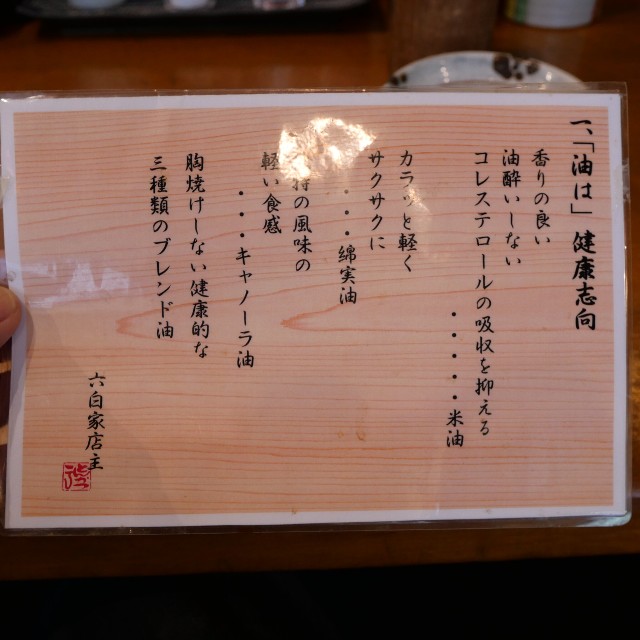 一、「油は」健康志向
香りの良い
油酔いしない
コレステロールの吸収を抑える
・・・・・米油
カラッと軽く
サクサクに
・・・綿実油
持の風味の
軽い食感
・・・キャノーラ油
胸焼けしない健康的な
三種類のブレンド油
六白家店主